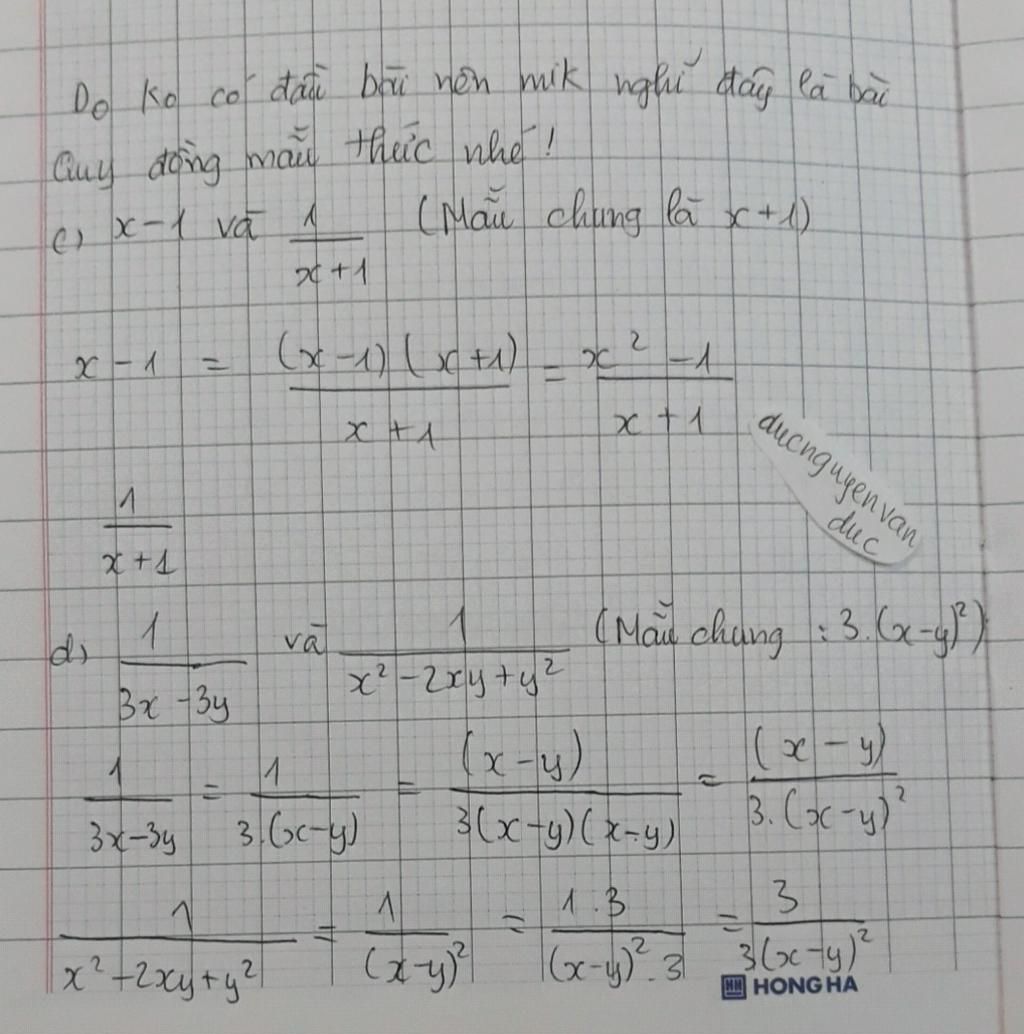 Do ko có đầu bài nên mik nghĩ đây là bài
Quy đồng mẫu thức nhé!
c) x-1 và 1/(x+1) (Mẫu chung là x+1)
x-1 = (x-1)(x+1)/(x+1) = (x²-1)/(x+1)
1/(x+1)
ducnguyenvan
duc
d) 1/(3x-3y) và 1/(x²-2xy+y²) (Mẫu chung : 3.(x-y)²)
1/(3x-3y) = 1/(3.(x-y)) = (x-y)/(3(x-y)(x-y)) = (x-y)/(3.(x-y)²)
1/(x²-2xy+y²) = 1/(x-y)² = 1.3/((x-y)².3) = 3/(3(x-y)²)
HH HONG HA